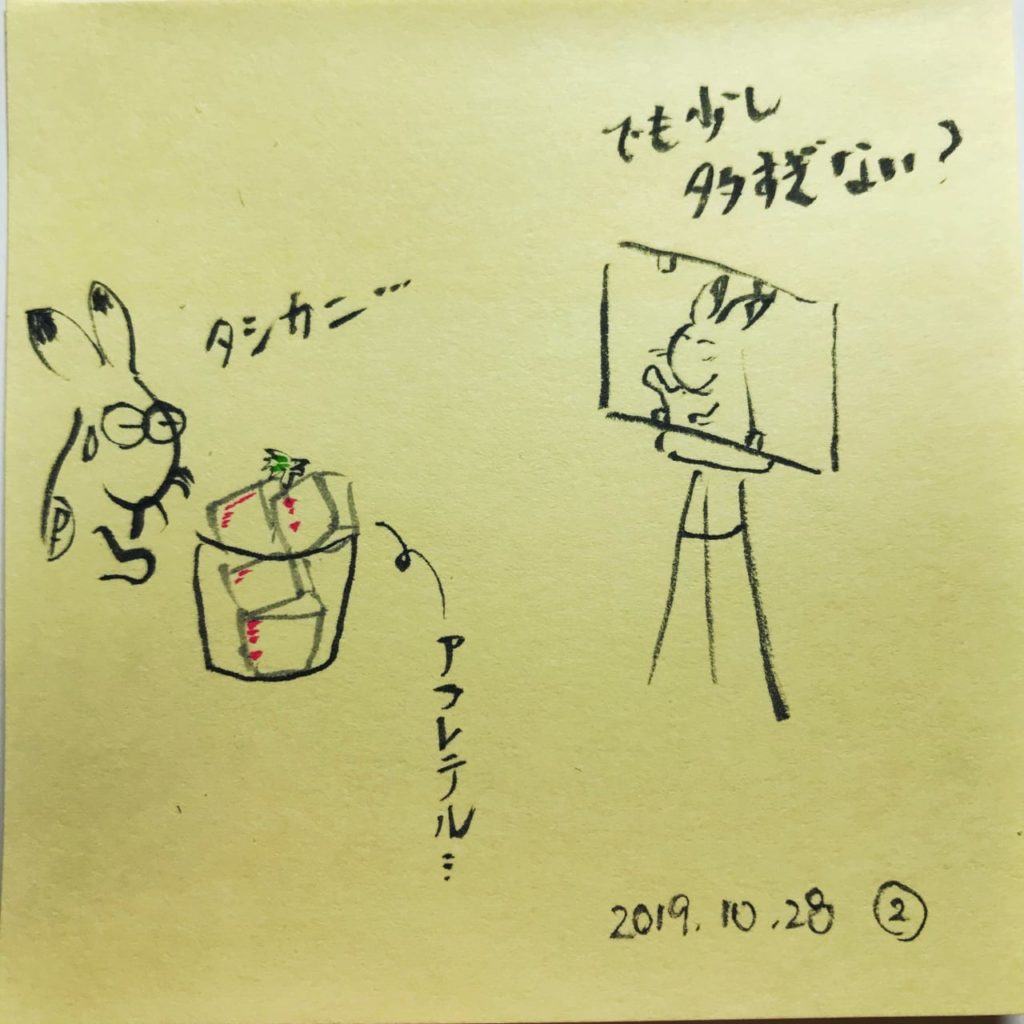 でも少し
多すぎない?
タシカニ…
P
アフレテル…
2019.10.28 ②